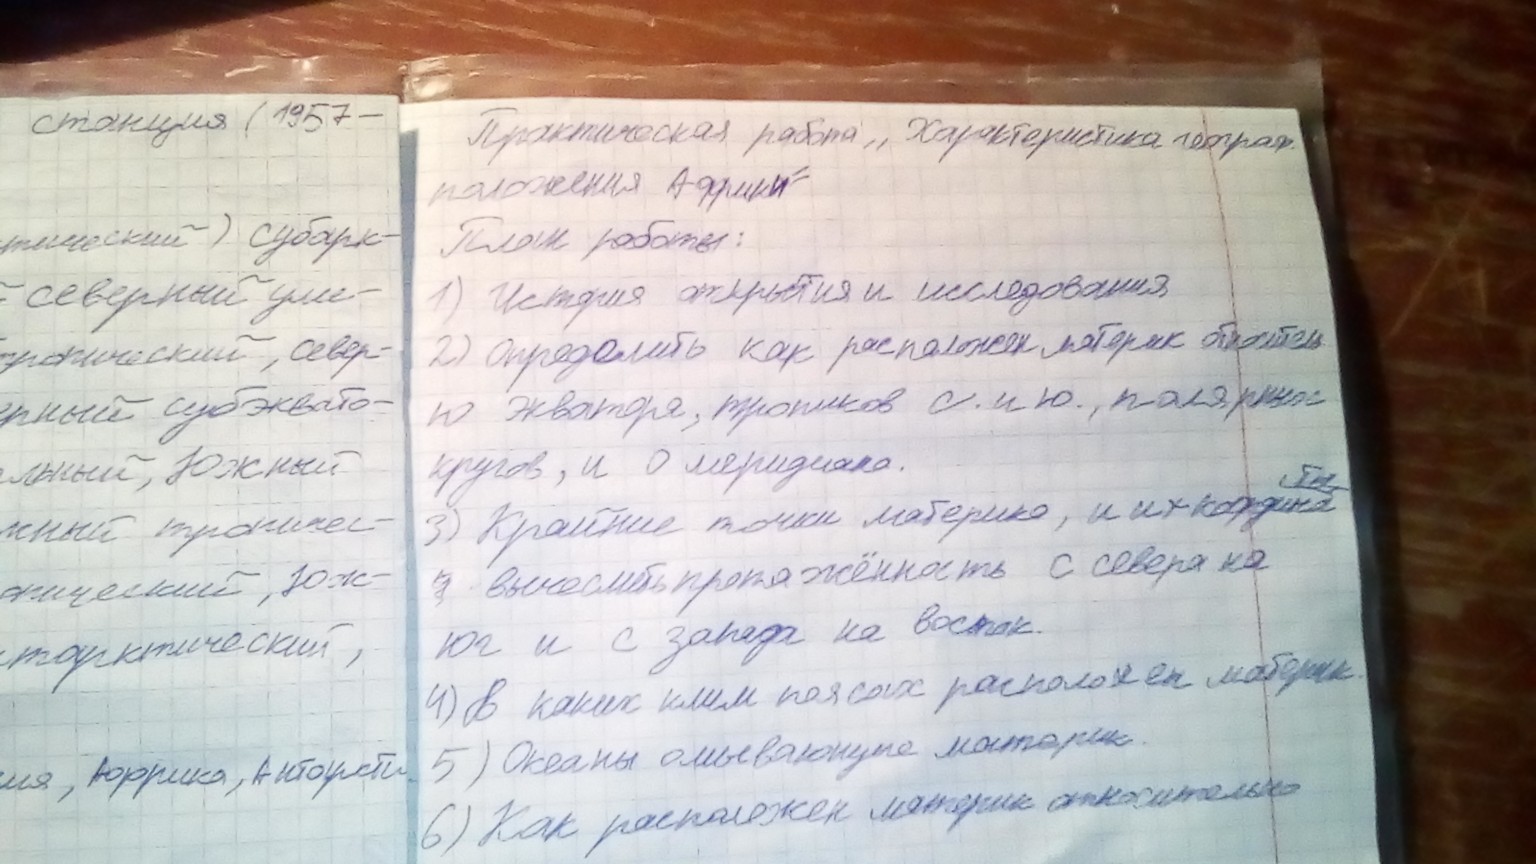 станция (1957-
тический) субарк-
северный уме-
тропический, север-
ерный субэквато-
альный, Южный
жный тропичес-
пический, Юж-
тарктический,
ия, Африка, Антаркти
Практическая работа ,, Характеристика географ.
положения Африки"
План работы:
1) История открытия и исследования
2) Определить как расположен материк относитель
но экватора, тропиков с. и ю., полярных
кругов, и 0 меридиана.
3) Крайние точки материка, и их координа
ты
вычеслить протяжённость с севера на
юг и с запада на восток.
4) В каких клим поясах расположен материк.
5) Океаны омывающие материк.
6) Как расположен материк относительно